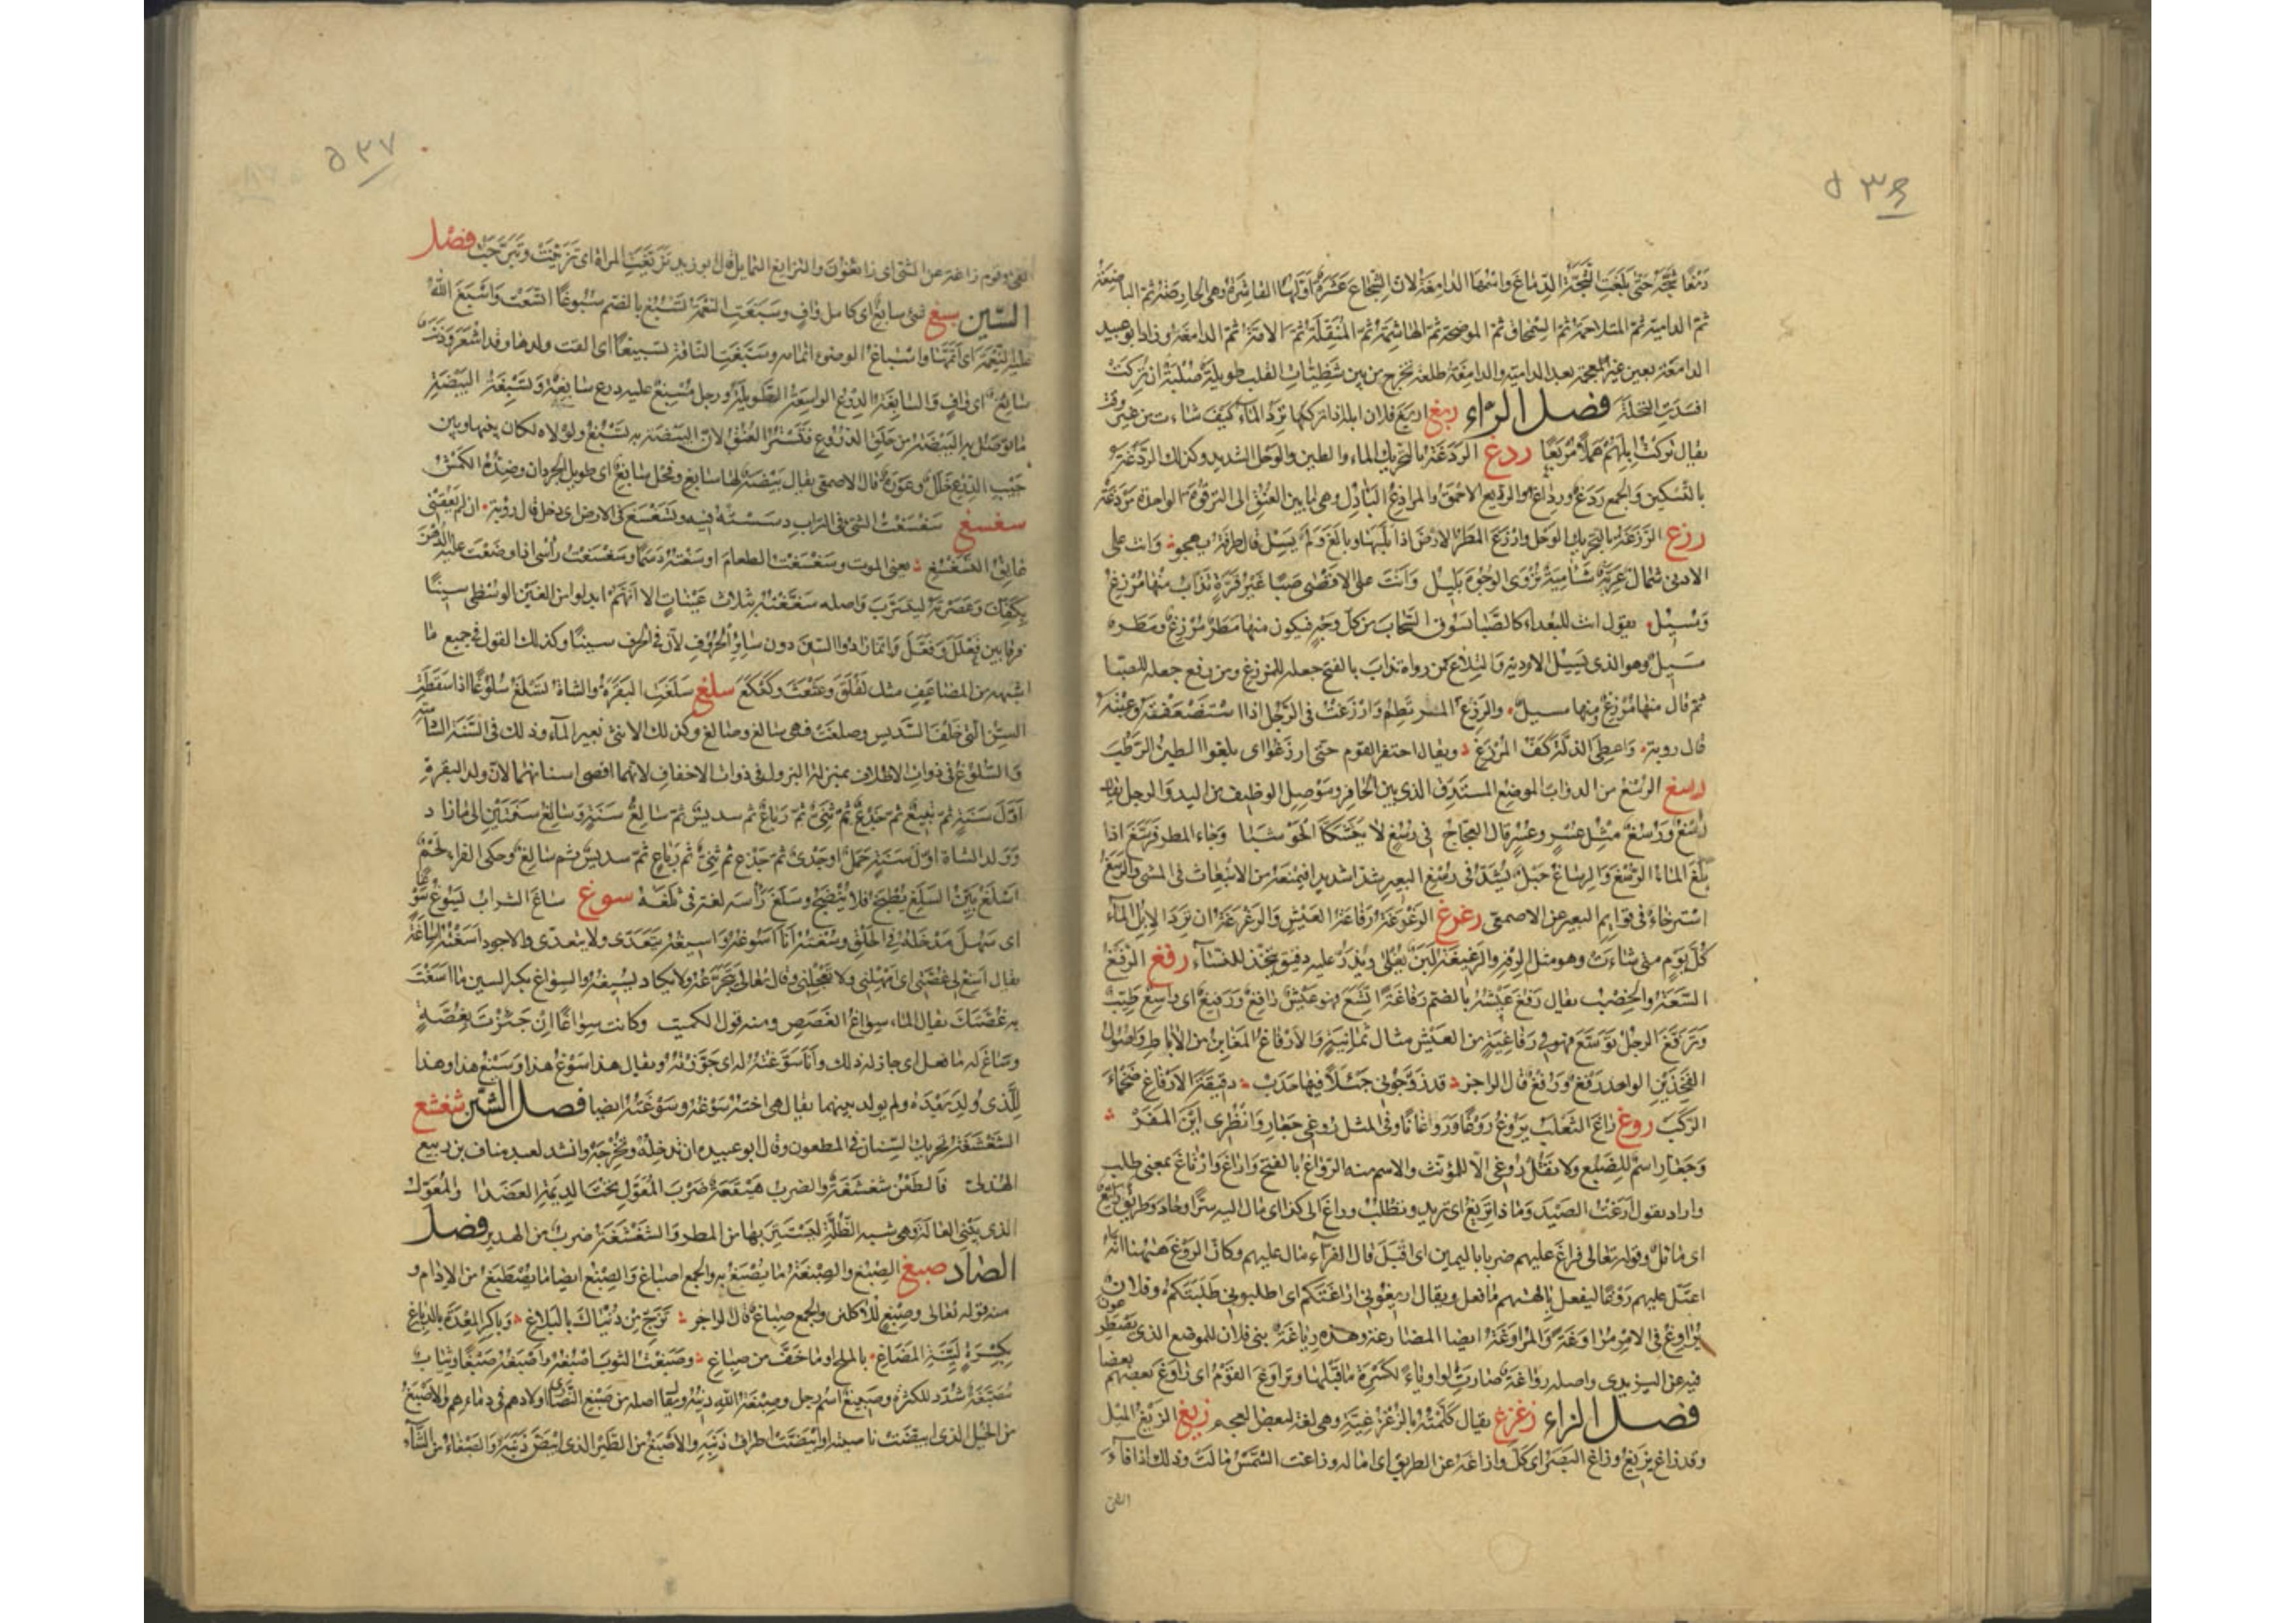 ٥٣٦
دمغا شجه حتى بلغت الشجة الدماغ واسمها الدامغة لان الشجاج عشرة اولها القاشرة وهي الحارصة ثم الباضعة
ثم الدامية ثم المتلاحمة ثم السمحاق ثم الموضحة ثم الهاشمة ثم المنقلة ثم الامة ثم الدامغة وزاد ابو عبيد
الدامعة بعين غير المعجمة بعد الدامية والدامغة طلعة تخرج من بين شظيات القلب طويلة صلبة ان تركت
افسدت النخلة فصل الراء ربغ اربغ فلان ابله اذا تركها ترد الماء كيف شاءت من غير وقت
يقال تركت ابلهم هملا مربغا ردغ الردغة بالتحريك الماء والطين والوحل الشديد وكذلك الردغة
بالتسكين والجمع ردغ ورداغ والرديغ الاحمق والمرادغ البآدل وهي ما بين العنق الى الترقوة الواحدة مردغة
رزغ الرزغة بالتحريك الوحل وارزغ المطر الارض اذا بلها وبالغ ولم يسل قال طرفة يهجو وانت على
الادنى شمال عرية شآمية تزوى الوجوه بليل وانت على الاقصى صبا غير قرة تذاب منها مرزغ
ومسيل يقول انت للبعداء كالصبا تسوق السحاب من كل وجه فيكون منها مطر مرزغ ومطر
مسيل وهو الذى يسيل الاودية والتلاع من رواه تذاب بالفتح جعله للمرزغ ومن رفع جعله للصبا
ثم قال منها مرزغ ومنها مسيل والرزغ المرتطم وارزغت في الرجل اذا استضعفته وعبته
قال روبة واعطي الذلة كف المرزغ ويقال احتفر القوم حتى ارزغوا اى بلغوا الطين الرطب
رسغ الرسغ من الدواب الموضع المستدق الذى بين الحافر وموصل الوظيف من اليد والرجل يقال
رسغ ورسغ مثل عسر وعسر قال العجاج في رسغ لا يتشكى الحوشبا وجاء المطر فرسغ اذا
بلغ الماء الرسغ والرساغ حبل يشد في رسغ البعير شدا شديدا فيمنعه من الانبعاث في المشى والرسغ
استرخاء في قوايم البعير عن الاصمعى رغرغ الرغرغة رفاغة العيش والرغرغة ان ترد الابل الماء
كل يوم متى شاءت وهو مثل الرفه والرغيغة لبن يغلى ويذر عليه دقيق يتخذ للنفساء رفغ الرفغ
السعة والخصب يقال رفغ عيشه بالضم رفاغة اتسع فهو عيش رافغ ورفيغ اى واسع طيب
وترفغ الرجل توسع فهو في رفاغية من العيش مثال ثمانية والارفاغ المغابن من الاباط واصول
الفخذين الواحد رفغ ورفغ قال الراجز قد زوجوني جيئلا فيها حدب دقيقة الارفاغ ضخماء
الركب روغ راغ الثعلب يروغ روغا وروغانا وفي المثل روغى جعار وانظرى اين المفر
وجعار اسم للضبع ولا تقل روغى الا للمؤنث والاسم منه الرواغ بالفتح واراغ وارتاغ بمعنى طلب
واراد تقول ارغت الصيد وماذا تريغ اى تريد وتطلب وراغ الى كذا اى مال اليه سرا وحاد وطريق رائغ
اى مائل وقوله تعالى فراغ عليهم ضربا باليمين اى اقبل قال الفراء مال عليهم وكان الروغ ههنا انه
اعتل عليهم روغا ليفعل بالهتهم ما فعل ويقال اريغوني اراغتكم اى اطلبوني طلبتكم وفلان
يراوغ في الامر مراوغة والمراوغة ايضا المصارعة وهذه رياغة بني فلان للموضع الذى يصطرعون
فيه عن اليزيدى واصله رواغة صارت الواو ياء لكسرة ما قبلها وتراوغ القوم اى راوغ بعضهم بعضا
فصل الزاء زغزغ يقال كلمته بالزغزغية وهي لغة لبعض العجم زيغ الزيغ الميل
وقد زاغ يزيغ وزاغ البصر اى كل وازاغه عن الطريق اى اماله وزاغت الشمس مالت وذلك اذا فاء
الفئ
٥٣٧
الفئ وقوم زاغة عن الشئ اى زائغون والتزايغ التمايل قال ابو زيد تزيغت المراة اى تزينت وتبرجت فصل
السين سبغ شئ سابغ اى كامل واف وسبغت النعمة تسبغ بالضم سبوغا اتسعت واسبغ الله
عليه النعمة اى اتمها واسباغ الوضوء اتمامه وسبغت الناقة تسبيغا اى القت ولدها وقد اشعر وذنب
سابغ اى واف والسابغة الدرع الواسعة الطويلة ورجل مسبغ عليه درع سابغة وتسبغة البيضة
ما توصل به البيضة من حلق الدروع فتستر العنق لان البيضة به تسبغ ولولاه لكان بينها وبين
جيب الدرع خلل وعورة قال الاصمعى يقال بيضة لها سابغ وفحل سابغ اى طويل الجردان وضده الكمش
سغسغ سغسغت الشئ في التراب دسسته فيه وتسغسغ في الارض اى دخل قال روبة ان لم يعقني
عائق التسغسغ يعنى الموت وسغسغت الطعام اوسعته دسما وسغسغت راسى اذا وضعت عليه الدهن
بكفيك وعصرته ليتشرب واصله سغغته بثلاث غينات الا انهم ابدلوا من الغين الوسطى سينا
فرقا بين فعلل وفعل وانما زادوا السين دون سائر الحروف لان في الحرف سينا وكذلك القول في جميع ما
اشبهه من المضاعف مثل لقلق وعثعث وكعكع سلغ سلغت البقرة والشاة تسلغ سلوغا اذا سقطت
السن التي خلف السديس وصلغت فهي سالغ وصالغ وكذلك الانثى بغير الهاء وذلك في السنة السادسة
والسلوغ في ذوات الاظلاف بمنزلة البزول في ذوات الاخفاف لانهما اقصى اسنانهما لان ولد البقرة
اول سنة ثم تبيع ثم جذع ثم ثني ثم رباع ثم سديس ثم سالغ سنة وسالغ سنتين الى ما زاد
وولد الشاة اول سنة حمل او جدى ثم جذع ثم ثني ثم رباع ثم سديس ثم سالغ وحكى الفراء لحم
اسلغ بين السلغ يطبخ فلا ينضج وسلغ راسه لغة في ثلغه سوغ ساغ الشراب يسوغ سوغا
اى سهل مدخله في الحلق وسغته انا اسوغه واسيغه يتعدى ولا يتعدى والاجود اسغته اساغة
يقال اسغ لى غصتى اى امهلني ولا تعجلني وقال تعالى يتجرعه ولا يكاد يسيغه والسواغ بكسر السين ما اسغت
به غصتك يقال الماء سواغ الغصص ومنه قول الكميت وكانت سواغا ان جئزت بغصة
وساغ له ما فعل اى جاز له ذلك وانا سوغته له اى جوزته ويقال هذا سوغ هذا وسيغ هذا وهذا
للذى ولد بعده ولم يولد بينهما يقال هي اخته سوغه وسوغته ايضا فصل الشين شغشغ
الشغشغة تحريك السنان في المطعون وقال ابو عبيده ان تدخله وتخرجه وانشد لعبد مناف بن ربيع
الهذلى فالطعن شغشغة والضرب هيقعة ضرب المعول تحت الديمة العضدا والمعول
الذى يبنى العالة وهي شبه الظلة ليستتر بها من المطر والشغشغة ضرب من الهدير فصل
الصاد صبغ الصبغ والصبغة ما يصبغ به والجمع اصباغ والصبغ ايضا ما يصطبغ من الادام و
منه قوله تعالى وصبغ للآكلين والجمع صباغ قال الراجز تزج من دنياك بالبلاغ وباكر المعدة بالدباغ
بكسرة لينة المضاغ بالملح او ما خف من صباغ وصبغت الثوب اصبغه واصبغه صبغا وثياب
مصبغة شدد للكثرة وصبيغ اسم رجل وصبغة الله دينه ويقال اصله من صبغ النصارى اولادهم في ماء لهم والاصبغ
من الخيل الذى ابيضت ناصيته او ابيضت اطراف ذنبه والاصبغ من الطير الذى ابيض ذنبه والصبغاء من الشاء